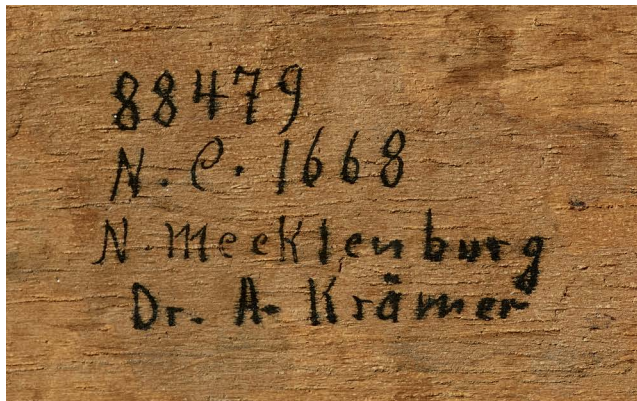 88479
N. C. 1668
N. Mecklenburg
Dr. A. Krämer